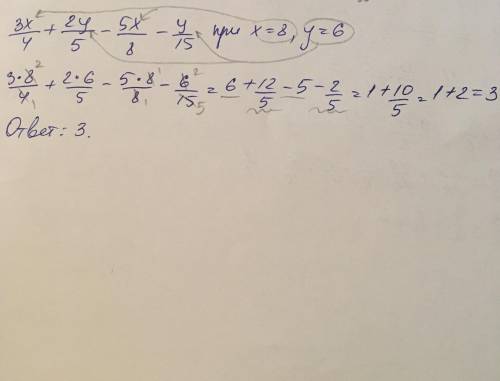 3x/4 + 2y/5 - 5x/8 - y/15 при x=8, y=6
3·8²/4₁ + 2·6/5 - 5·8¹/8₁ - 6²/15₅ = 6 + 12/5 - 5 - 2/5 = 1 + 10/5 = 1 + 2 = 3
Ответ: 3.